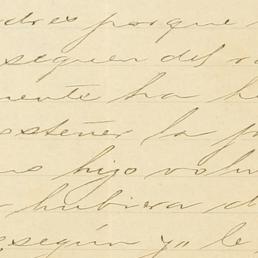 dres porque
seguen del
mente ha h
ostener la p
hijo volu
hubiera d
según yo le